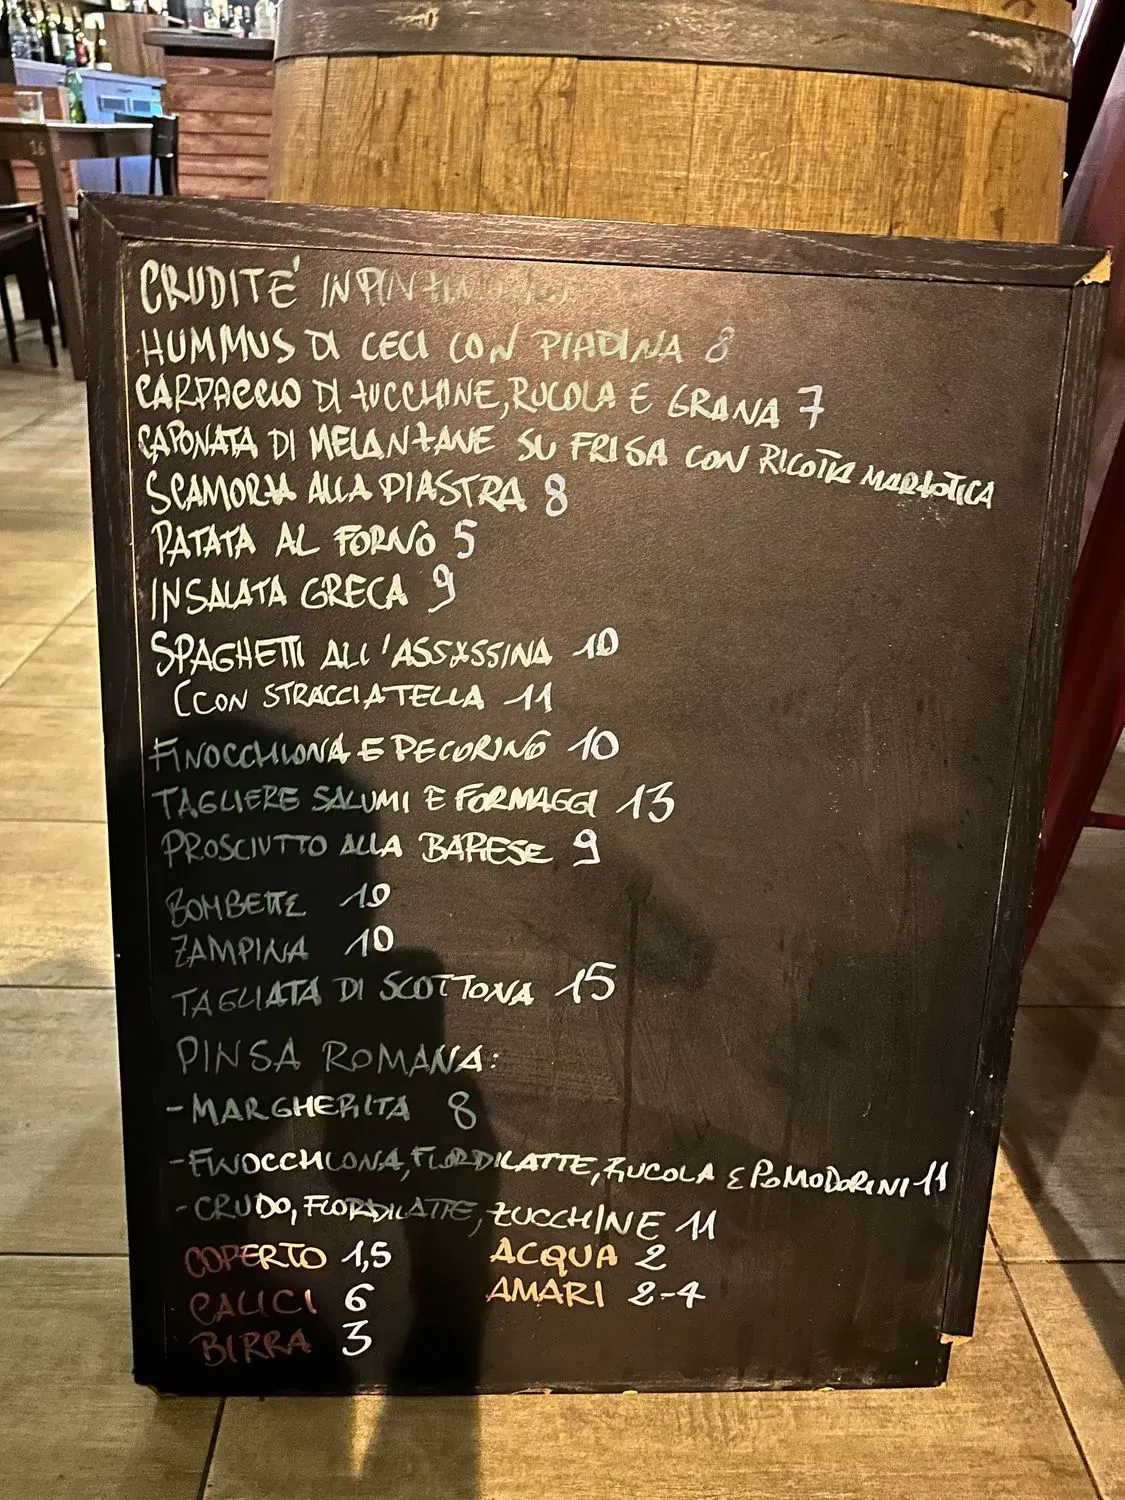 CRUDITE' IN PINZIMONIO
HUMMUS DI CECI CON PIADINA 8
CARPACCIO DI ZUCCHINE, RUCOLA E GRANA 7
CAPONATA DI MELANZANE SU FRISA CON RICOTTA MARZOTICA
SCAMORZA ALLA PIASTRA 8
PATATA AL FORNO 5
INSALATA GRECA 9
SPAGHETTI ALL'ASSASSINA 10
(CON STRACCIATELLA 11
FINOCCHIONA E PECORINO 10
TAGLIERE SALUMI E FORMAGGI 13
PROSCIUTTO ALLA BARESE 9
BOMBETTE 10
ZAMPINA 10
TAGLIATA DI SCOTTONA 15
PINSA ROMANA:
- MARGHERITA 8
- FINOCCHIONA, FIORDILATTE, RUCOLA E POMODORINI 11
- CRUDO, FIORDILATTE, ZUCCHINE 11
COPERTO 1,5 ACQUA 2
CALICI 6 AMARI 2-4
BIRRA 3
16